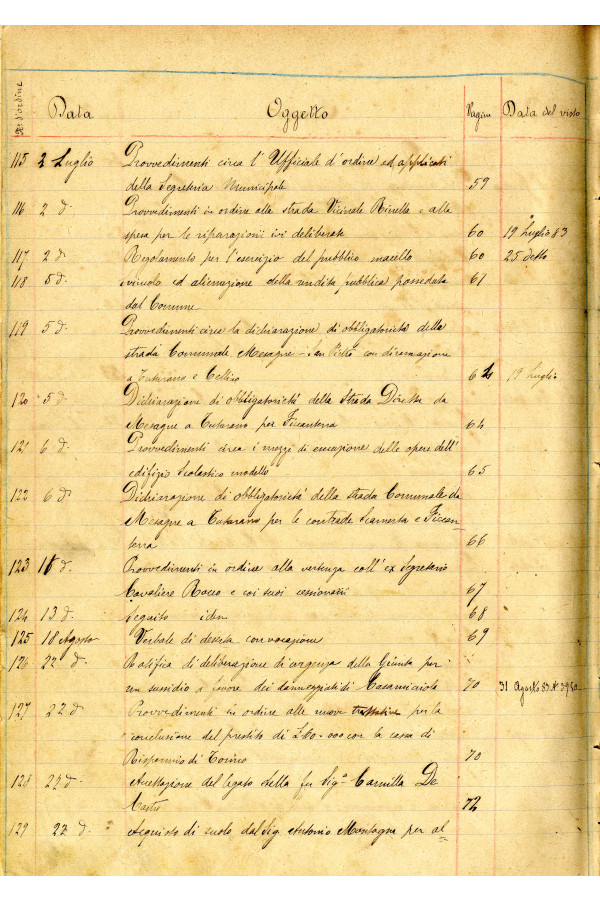 N° d'ordine Data Oggetto Pagina Data del visto
115 2 Luglio Provvedimenti circa l'Ufficiale d'ordine ed applicati
della Segreteria Municipale 59
116 2 d.° Provvedimenti in ordine alla strada Vicinale Rinella e alla
spesa per le riparazioni ivi deliberate 60 19 Luglio 83
117 2 d.° Regolamento per l'esercizio del pubblico macello 60 25 detto
118 5 d.° Svincolo ed alienazione della rendita pubblica posseduta 61
dal Comune
119 5 d.° Provvedimenti circa la dichiarazione di obbligatorietà della
strada Comunale Mesagne - San Vito con diramazione
a Tuturano e Cellino 62 19 Luglio
120 5 d.° Dichiarazione di obbligatorietà della Strada Diretta da
Mesagne a Tuturano per Ficanterra 64
121 6 d.° Provvedimenti circa i mezzi di esecuzione delle opere dell'
edifizio Scolastico modello 65
122 6 d.° Dichiarazione di obbligatorietà della strada Comunale da
Mesagne a Tuturano per le contrade e Ficcan-
terra 66
123 d.° Provvedimenti in ordine alla vertenza coll'ex Segretario
Cavaliere Rocco e coi suoi cessionarii 67
124 13 d.° Seguito idem 68
125 18 Agosto Verbale di deserta convocazione 69
126 22 d.° Ratifica di deliberazione di urgenza della Giunta per
un sussidio a favore dei danneggiati di Casamicciola 70 31 Agosto 83 N°
127 22 d.° Provvedimenti in ordine alle nuove trattative per la
conclusione del prestito di L. 60.000 con la cassa di
Risparmio di Torino 70
128 22 d.° Accettazione del legato della fu Sig.ª Camilla De
Castro 72
129 22 d.° Acquisto di suolo dal Sig. Antonio Montagna per al-